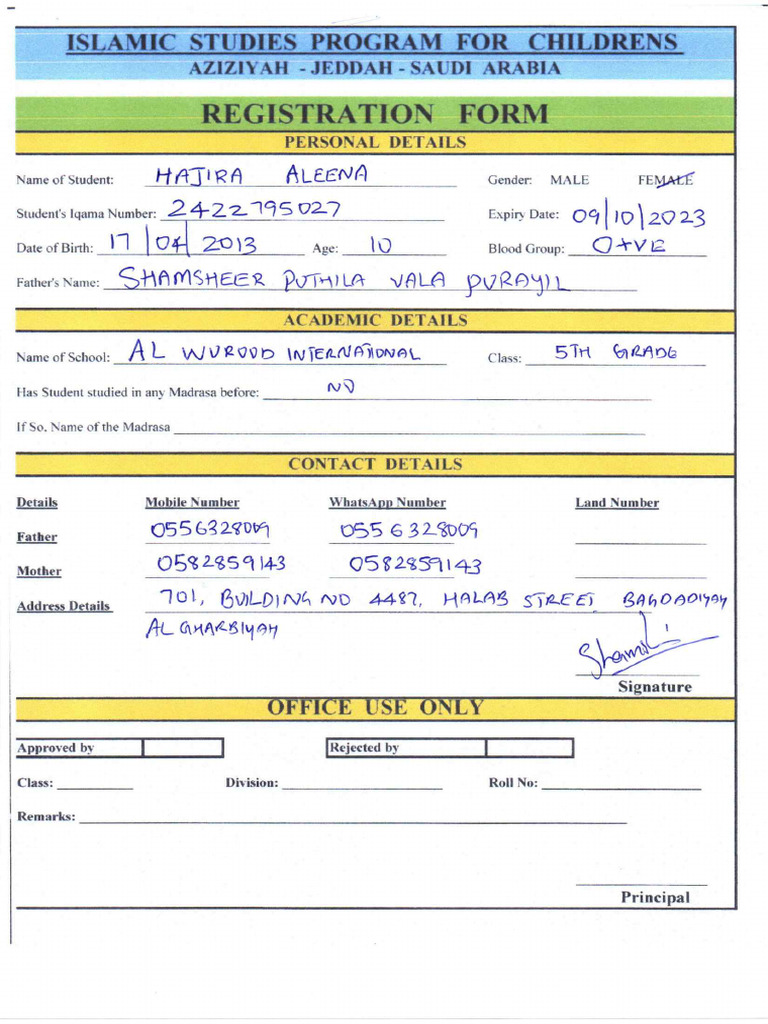 ISLAMIC STUDIES PROGRAM FOR CHILDRENS
AZIZIYAH - JEDDAH - SAUDI ARABIA
REGISTRATION FORM
PERSONAL DETAILS
Name of Student: HAJIRA ALEENA Gender: MALE FEMALE
Student's Iqama Number: 2422795027 Expiry Date: 09/10/2023
Date of Birth: 17/04/2013 Age: 10 Blood Group: O+VE
Father's Name: SHAMSHEER PUTHILA VALA PURAYIL
ACADEMIC DETAILS
Name of School: AL WUROOD INTERNATIONAL Class: 5TH GRADE
Has Student studied in any Madrasa before: NO
If So. Name of the Madrasa
CONTACT DETAILS
Details Mobile Number WhatsApp Number Land Number
Father 0556328009 0556328009
Mother 0582859143 0582859143
Address Details 701, BUILDING NO 4487, HALAB STREET, BAGDADIYAH
AL GHARBIYAH
Signature
OFFICE USE ONLY
Approved by Rejected by
Class: Division: Roll No:
Remarks:
Principal